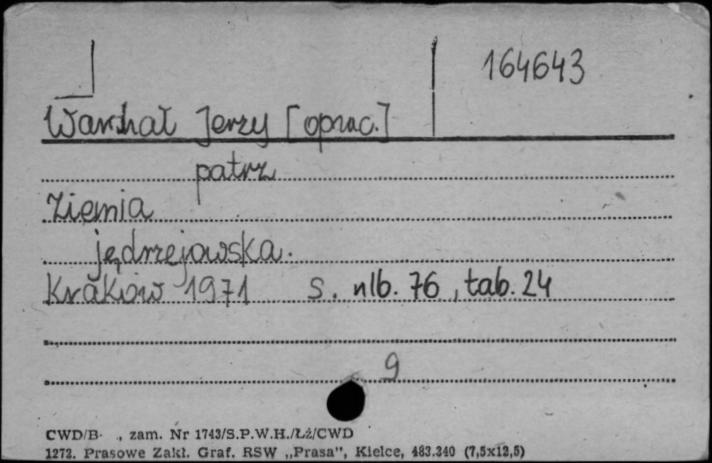 164643
Warchał Jerzy [oprac.]
patrz
Ziemia
jędrzejowska.
Kraków 1971 s. nlb. 76, tab. 24
9
CWD/B- ., zam. Nr 1743/S.P.W.H./Łź/CWD
1272. Prasowe Zakł. Graf. RSW „Prasa", Kielce, 483.340 (7,5x12,5)